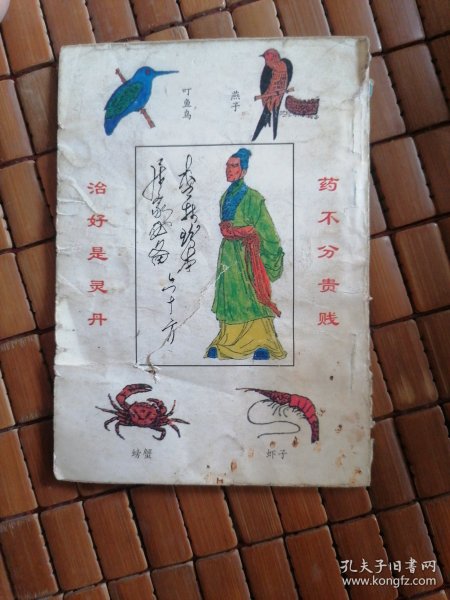 叮鱼鸟
燕子
药不分贵贱
治好是灵丹
居家必备
六十方
螃蟹
虾子
孔夫子旧书网
www.kongfz.com